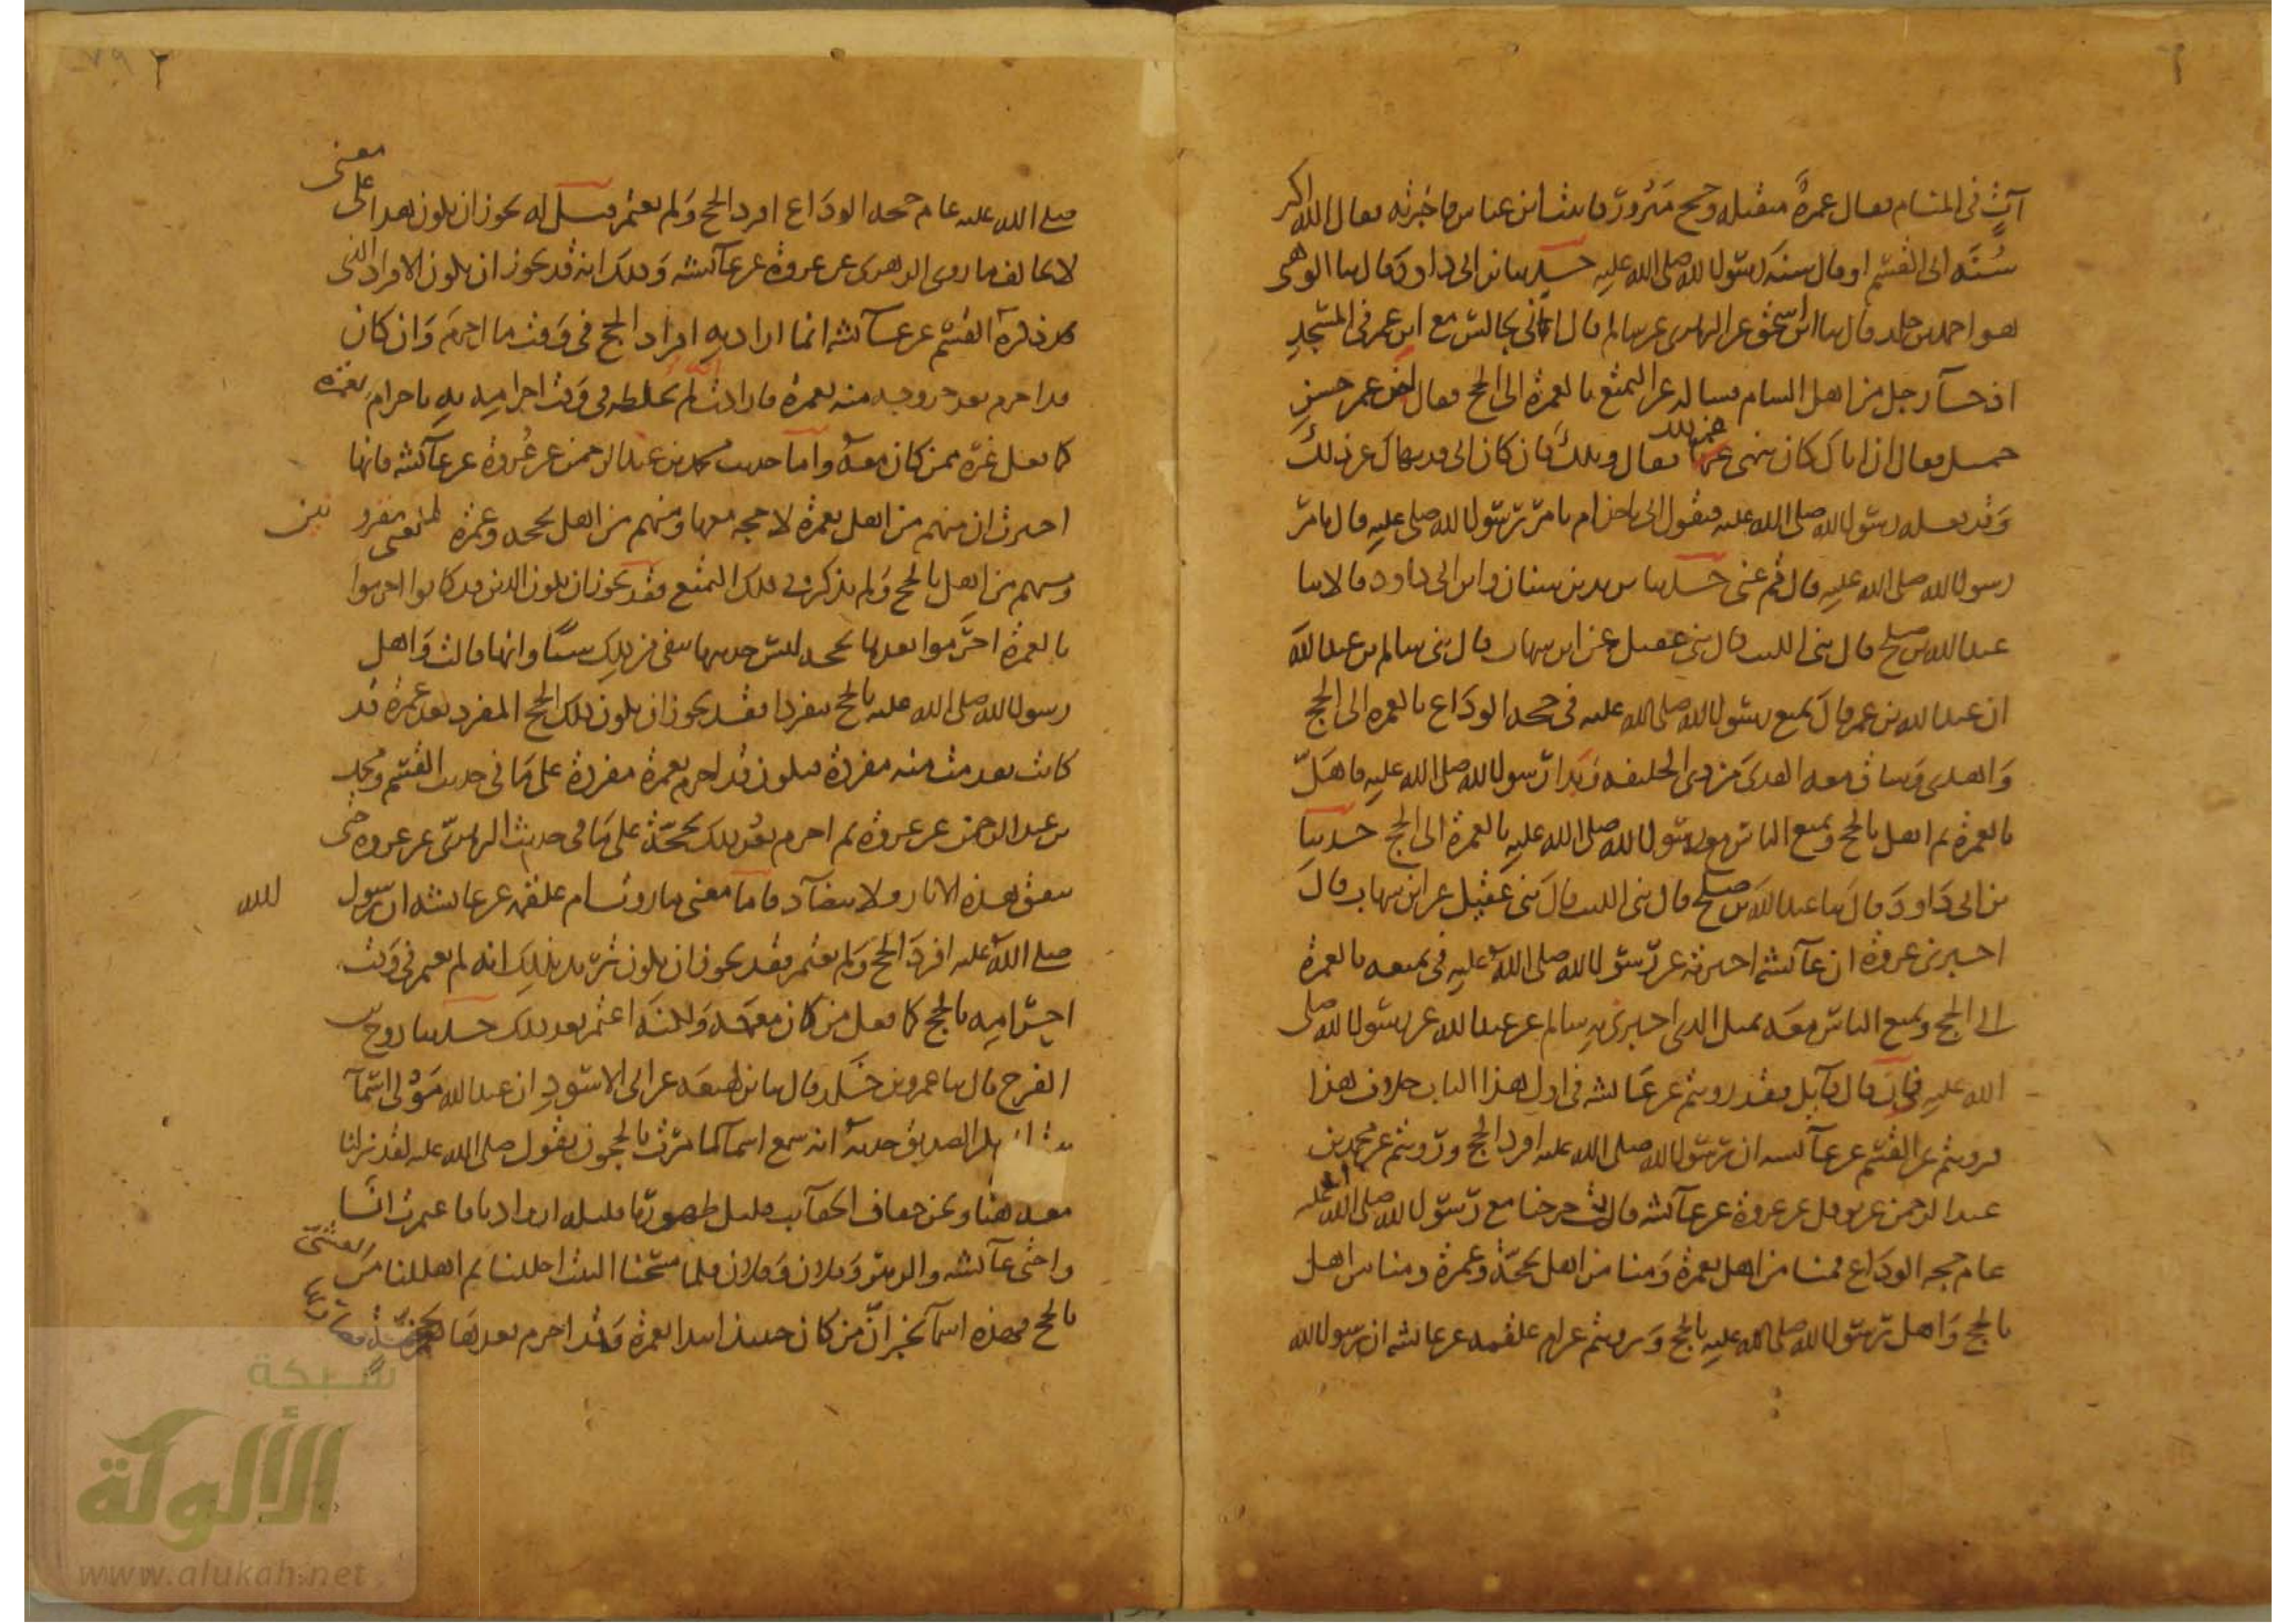 آتٍ في المنام فقال عمرة متقبله وحج مبرور فاتيت ابن عباس فاخبرته فقال الله اكبر
سُنّة ابي القسم او قال سنة رسول الله صلى الله عليه حدثنا ابن ابي داود قال ثنا الوهبي
هو احمد بن خلد قال ثنا ابن اسحق عن الزهري عن سالم قال اني لجالس مع ابن عمر في المسجد
اذ جآه رجل من اهل الشام فساله عن التمتع بالعمرة الى الحج فقال ابن عمر حسن
جميل فقال ان اباك كان ينهى عن ذلك فقال ويلك فان كان ابي قد نهى عن ذلك
وقد فعله رسول الله صلى الله عليه فبقول ابي ناخذ ام بامر رسول الله صلى عليه قال بامر
رسول الله صلى الله عليه قال قم عني حدثنا يزيد بن سنان وابن ابي داود قالا ثنا
عبد الله بن صلح قال ثني الليث قال ثني عقيل عن ابن شهاب قال ثني سالم بن عبد الله
ان عبد الله بن عمر قال تمتع رسول الله صلى الله عليه في حجة الوداع بالعمرة الى الحج
واهدى وساق معه الهدي من ذي الحليفة وبدا رسول الله صلى الله عليه فاهلّ
بالعمرة ثم اهل بالحج وتمتع الناس مع رسول الله صلى الله عليه بالعمرة الى الحج حدثنا
بن ابي داود قال ثنا عبد الله بن صلح قال ثني الليث قال ثني عقيل عن ابن شهاب قال
اخبرني عروة ان عآئشة اخبرته عن رسول الله صلى الله عليه في تمتعه بالعمرة
الى الحج وتمتع الناس معه بمثل الذي اخبرني به سالم عن عبد الله عن رسول الله صلى
الله عليه فان قال قآئل فقد رويتم عن عائشة في اول هذا الباب خلاف هذا
فرويتم عن القسم عن عآئشة ان رسول الله صلى الله عليه افرد الحج ورويتم عن محمد بن
عبد الرحمن بن نوفل عن عروة عن عآئشة قالت خرجنا مع رسول الله صلى الله عليه
عام حجة الوداع فمنا من اهل بعمرة ومنا من اهل بحجّة وعمرة ومنا من اهل
بالحج واهل رسول الله صلى الله عليه بالحج ورويتم عن ام علقمة عن عائشة ان رسول الله
صلى الله عليه عام حجة الوداع افرد الحج ولم يعتمر قيل له يجوز ان يكون هذا على معنى
لا يخالف ما روى الزهري عن عروة عن عآئشة وذلك انه قد يجوز ان يكون الافراد الذي
ذكره القسم عن عآئشة انما اراد به افراد الحج في وقت ما احرم وان كان
قد احرم بعد خروجه منه بعمرة فارادت انه لم يخلطه في وقت احرامه به باحرام بعمرة
كما فعل غيره ممن كان معه واما حديث محمد بن عبد الرحمن عن عُروة عن عآئشة فانها
اخبرت ان منهم من اهل بعمرة لا حجة معها ومنهم من اهل بحجة وعمرة تعني مقرونتين
ومنهم من اهل بالحج ولم يذكر في ذلك التمتع فقد يجوز ان يكون الذين قد كانوا احرموا
بالعمرة احرموا بعدها بحجة ليس حديثها ينفي من ذلك شيئا وانها قالت واهل
رسول الله صلى الله عليه بالحج مفردا فقد يجوز ان يكون ذلك الحج المفرد بعد عمرة قد
كانت تقدمت منه مفردة فيكون قد احرم بعمرة مفردة على ما في حديث القسم ومحمد
بن عبد الرحمن عن عروة ثم احرم بعد ذلك بحجّة على ما في حديث الزهري عن عروة حتى
تتفق هذه الاثار ولا تتضآد فاما معنى ما روت ام علقمة عن عائشة ان رسول الله
صلى الله عليه افرد الحج ولم يعتمر فقد يجوز ان يكون تريد بذلك انه لم يعتمر في وقت
احرامه بالحج كما فعل من كان معه ولكنه اعتمر بعد ذلك حدثنا روح بن
الفرج قال ثنا عمرو بن خلد قال ثنا بن لهيعة عن ابي الاسود ان عبد الله مولى اسمآ
بكر الصديق حدثه انه سمع اسمآ لما مرت بالحجون تقول صلى الله عليه لقد نزلنا
معه هنا ونحن خفاف الحقآئب قليل ظهورنا قليلة ازوادنا فاعتمرت انا
واختي عآئشة والزبير وفلان وفلان فلما مسحنا البيت احللنا ثم اهللنا من العشيّ
بالحج فهذه اسمآ تخبر ان من كان حينئذ ابتدا العمرة وقد احرم بعدها بحجة
شبكة
الألوكة
www.alukah.net